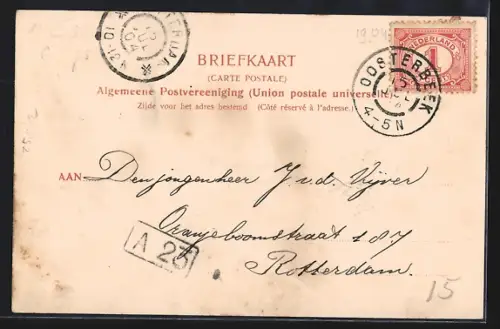 19.04
NEDERLAND
1
OOSTERBEEK
15
4-5N
BRIEFKAART
(CARTE POSTALE)
Algemeene Postvereeniging (Union postale universelle)
Zijde voor het adres bestemd (Côté réservé à l'adresse.)
AAN
Den jongenheer J. v. d. Vijver
Oranjeboomstraat 187
Rotterdam.
A 23
15